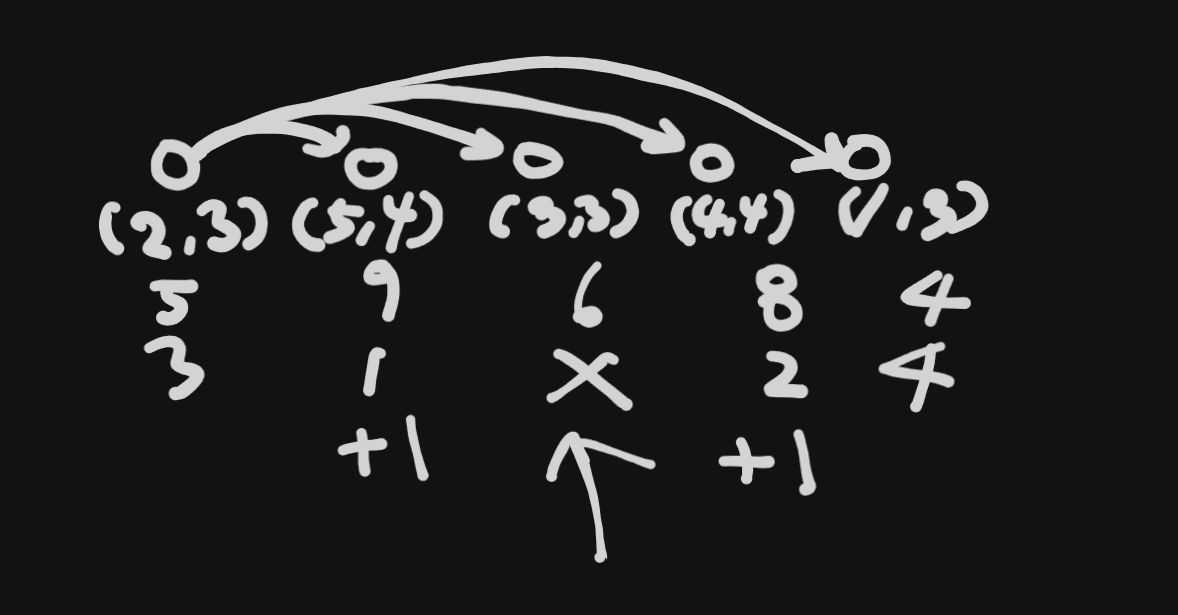 (2,3) (5,4) (3,3) (4,4) (1,3)
5 9 6 8 4
3 1 x 2 4
+1 +1